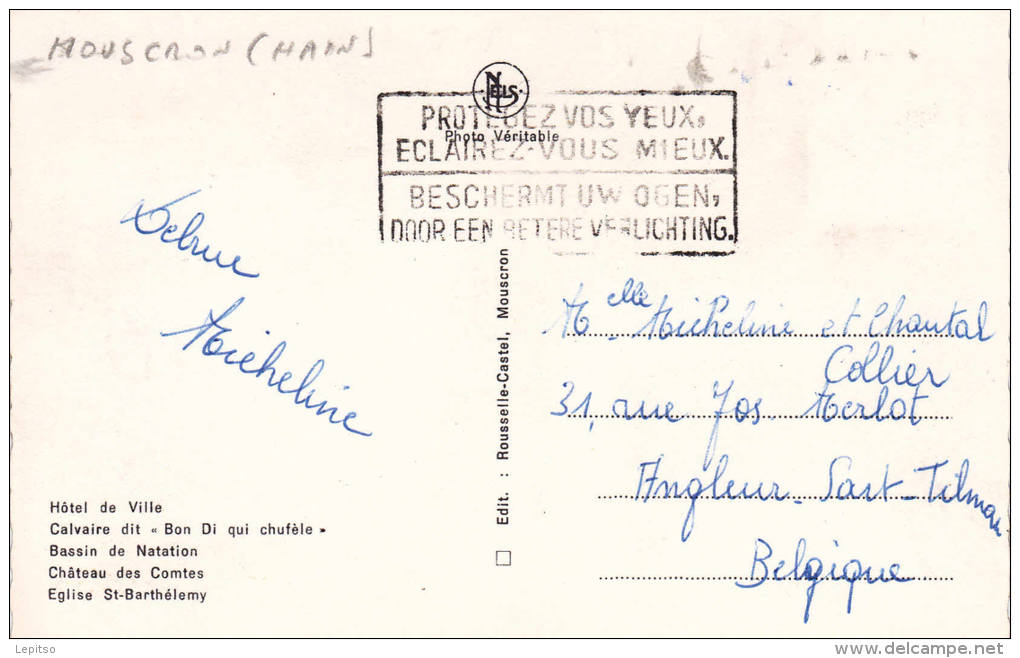 MOUSCRON (HAIN)
NELS
PROTEGEZ VOS YEUX,
Photo Véritable
ECLAIREZ-VOUS MIEUX.
BESCHERMT UW OGEN,
DOOR EEN BETERE VERLICHTING.
Debrue
Micheline
Melle Micheline et Chantal
Collier
31, rue Jos. Merlot
Angleur-Sart-Tilman
Belgique
Edit. : Rousselle-Castel, Mouscron
Hôtel de Ville
Calvaire dit « Bon Di qui chufèle »
Bassin de Natation
Château des Comtes
Eglise St-Barthélemy
Lepitso
www.delcampe.net